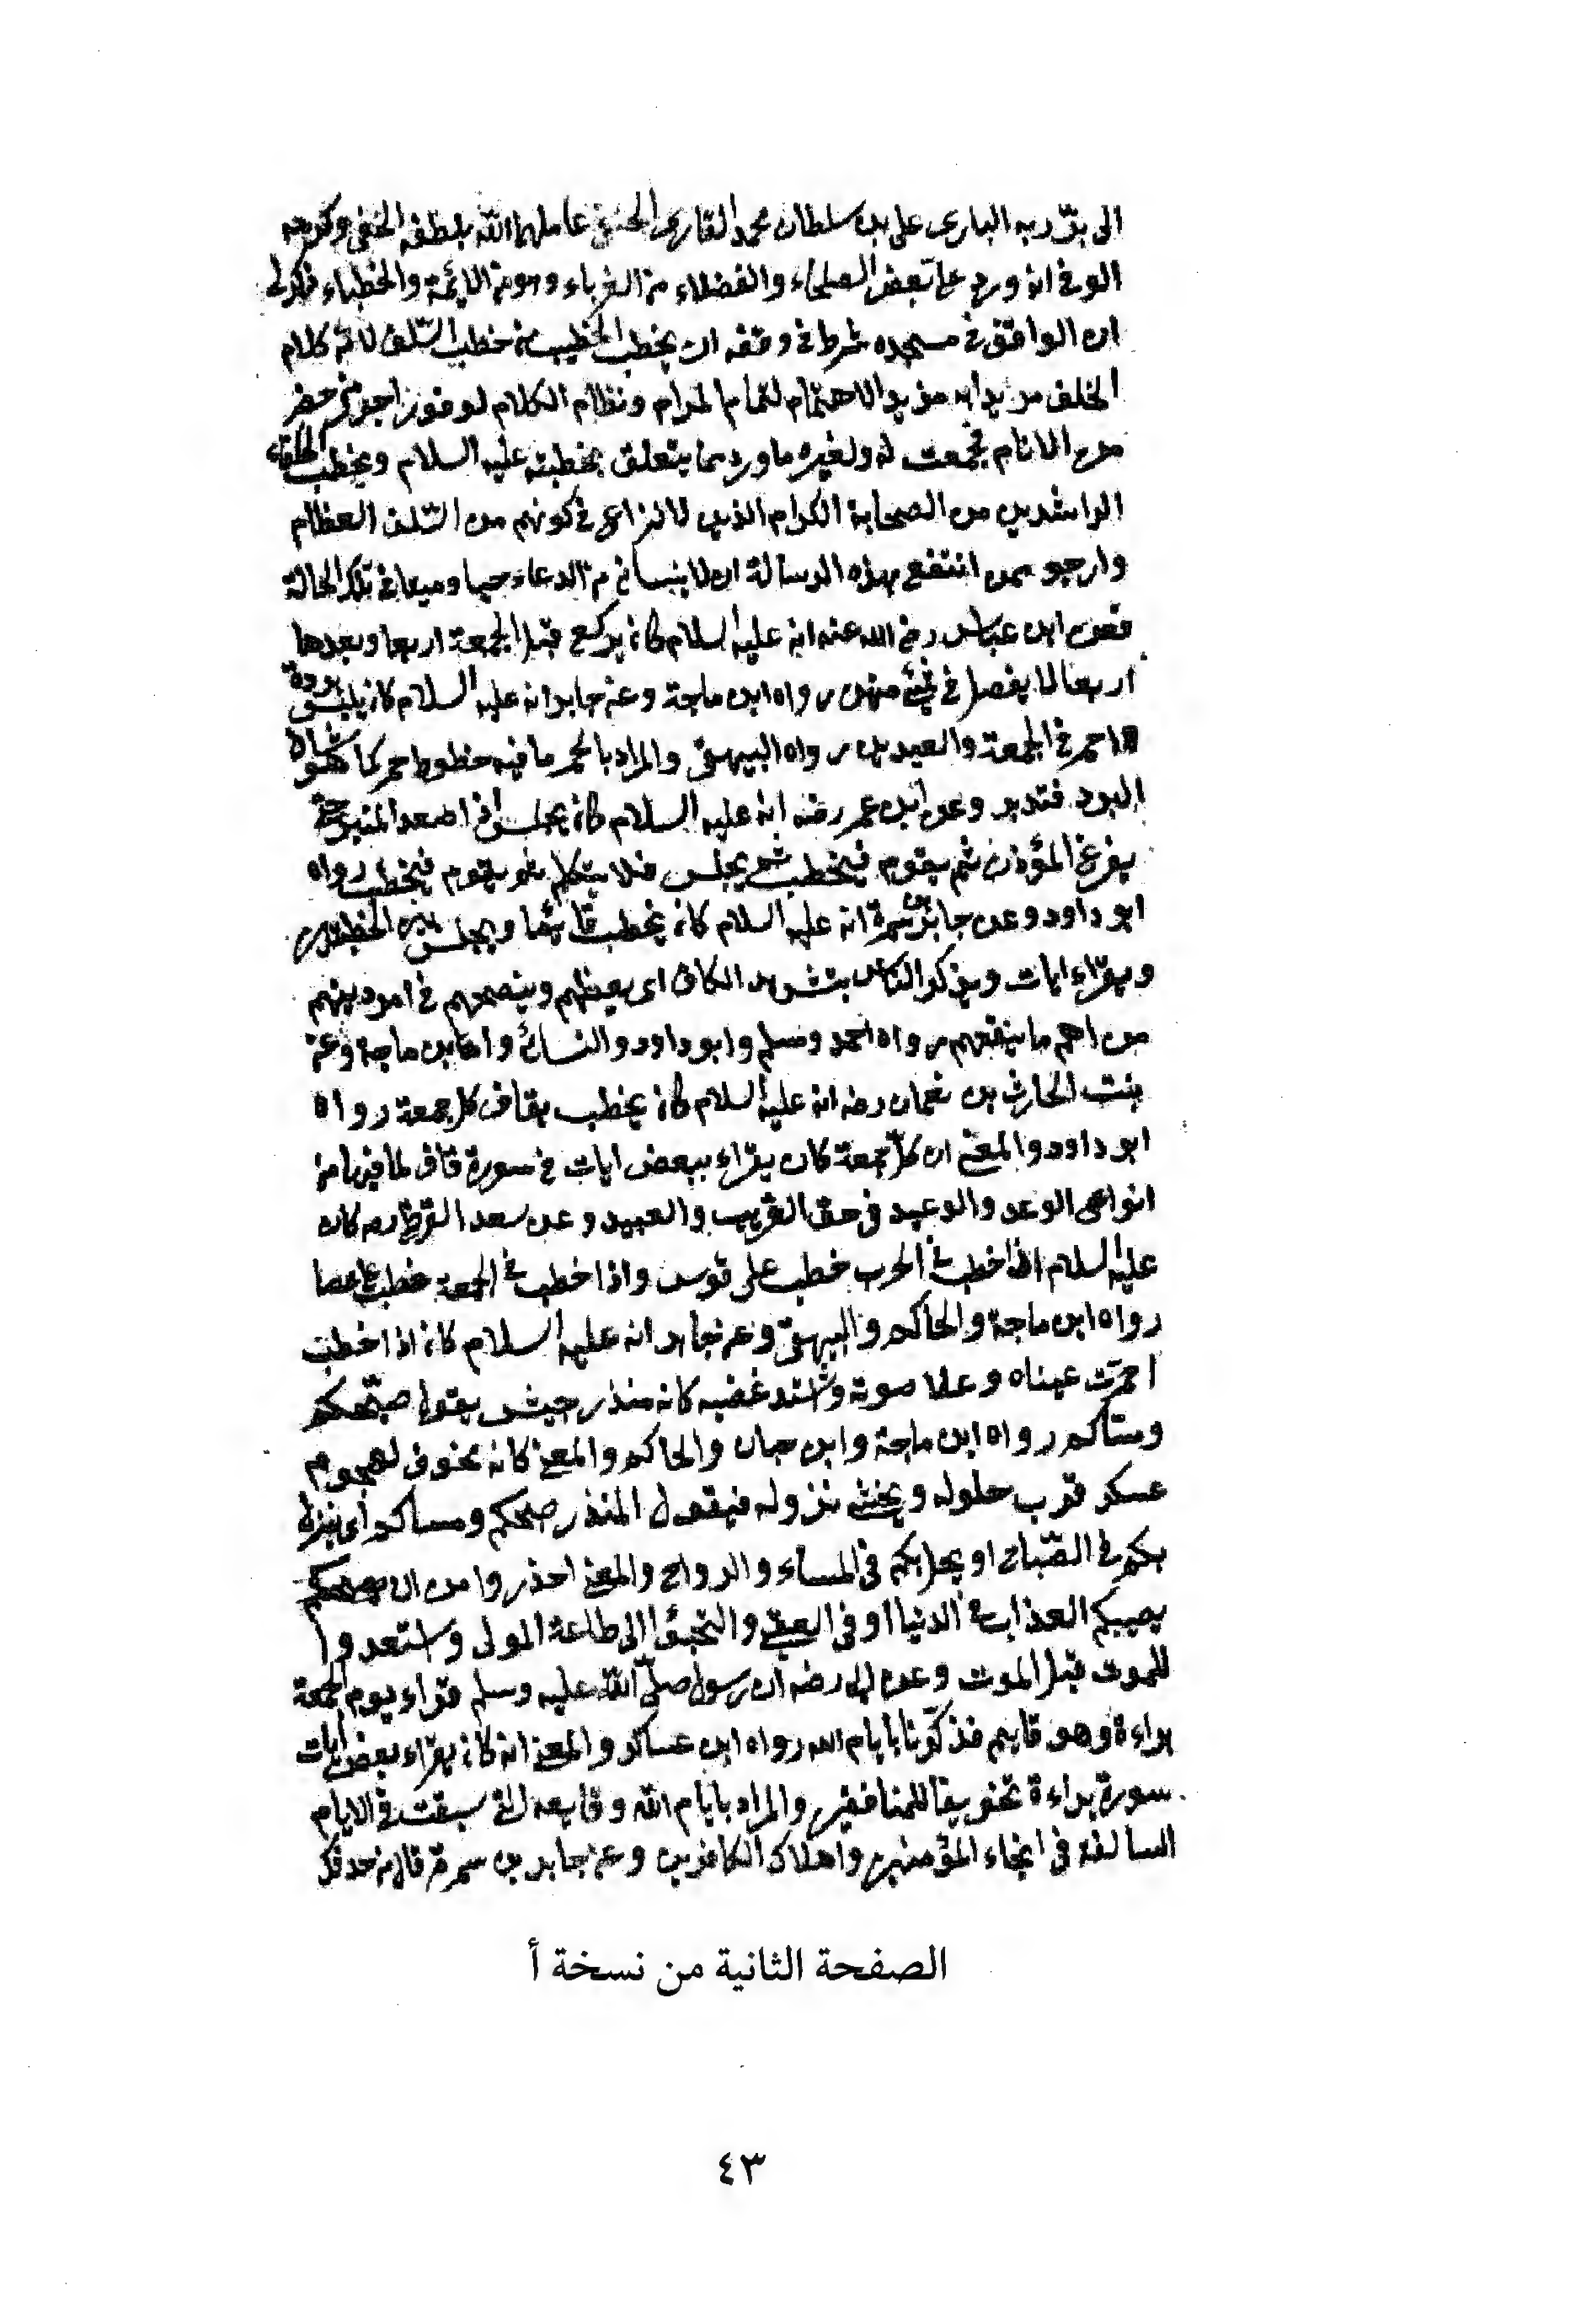 الى برّ ربه البارى على بن سلطان محمد القارى الحنفى عاملهما الله بلطفه الخفى وكرمه
الوفى انه ورد على بعض الصلحاء والفضلاء من الغرباء وهو من الايمة والخطباء فذكر لى
ان الواقف فى مسجده شرط فى وقفه ان يخطب الخطيب من خطب السّلف لا من كلام
الخلف مزيد الاهتمام لتمام المرام ونظام الكلام حضر
من الانام فجمعت له ولغيره ما ورد مما يتعلق بخطبته عليه السلام وبخطب الخلفاء
الراشدين من الصحابة الكرام الذين لا نزاع فى كونهم من السّلف العظام
وارجو ممن انتفع بهذه الرسالة ان لا ينسانى من الدعاء حيا وميتا فى تلك الحالة
فعن ابن عباس رضى الله عنه انه عليه السلام كان يركع قبل الجمعة اربعا وبعدها
اربعا لا يفصل فى شئ منهن رواه ابن ماجة وعن جابر انه عليه السلام كان يلبس بردة
احمر فى الجمعة والعيدين رواه البيهقى والمراد بالحمر ما فيه خطوط حمر كما هو شان
البرد فتدبر وعن ابن عمر رضه انه عليه السلام كان يجلس اذا صعد المنبر حتى
يفرغ المؤذن ثم يقوم فيخطب ثم يجلس فلا يتكلم ثم يقوم فيخطب رواه
ابو داود وعن جابر بن سمرة انه عليه السلام كان يخطب قائما ويجلس بين الخطبتين
ويقراء ايات ويذكر الناس بتشديد الكاف اى يعظهم وينصحهم فى امر دينهم
من اهم ما ينفعهم رواه احمد ومسلم وابو داود والنسائ وابن ماجة وعن
بنت الحارث بن نعمان رضه انه عليه السلام كان يخطب بقاف كل جمعة رواه
ابو داود والمعنى ان كلّ جمعة كان يقراء ببعض ايات فى سورة قاف لما فيها من
انواع الوعد والوعيد فى حق القريب والعبيد وعن سعد القرظ رضه كان
عليه السلام اذا خطب فى الحرب خطب على قوس واذا خطب فى الجمعة خطب على عصا
رواه ابن ماجة والحاكم والبيهقى وعن جابر انه عليه السلام كان اذا خطب
احمرّت عيناه وعلا صوته واشتد غضبه كانه منذر جيش يقول صبّحكم
ومسّاكم رواه ابن ماجة وابن حبان والحاكم والمعنى كانه يخوف لهجوم
عسكر قرب حلوله ويخشى نزوله فيقول المنذر صبحكم ومساكم اى ينزل
بكم فى الصّباح او يحل بكم فى المساء والرواح والمعنى احذروا من ان
يصيبكم العذاب فى الدنيا او فى العقبى والتجئوا الى طاعة المولى واستعدوا
للموت قبل الموت وعن ابى رضه ان رسول صلّى الله عليه وسلم قراء يوم الجمعة
براءة وهو قايم فذكّرنا بايام الله رواه ابن عساكر والمعنى انه كان يقراء بعض ايات
سورة براءة تخويفا للمنافقين والمراد بايام الله وقايعه التى سبقت فى الايام
السالفة فى انجاء المؤمنين واهلاك الكافرين وعن جابر بن سمرة قال
الصفحة الثانية من نسخة أ
٤٣